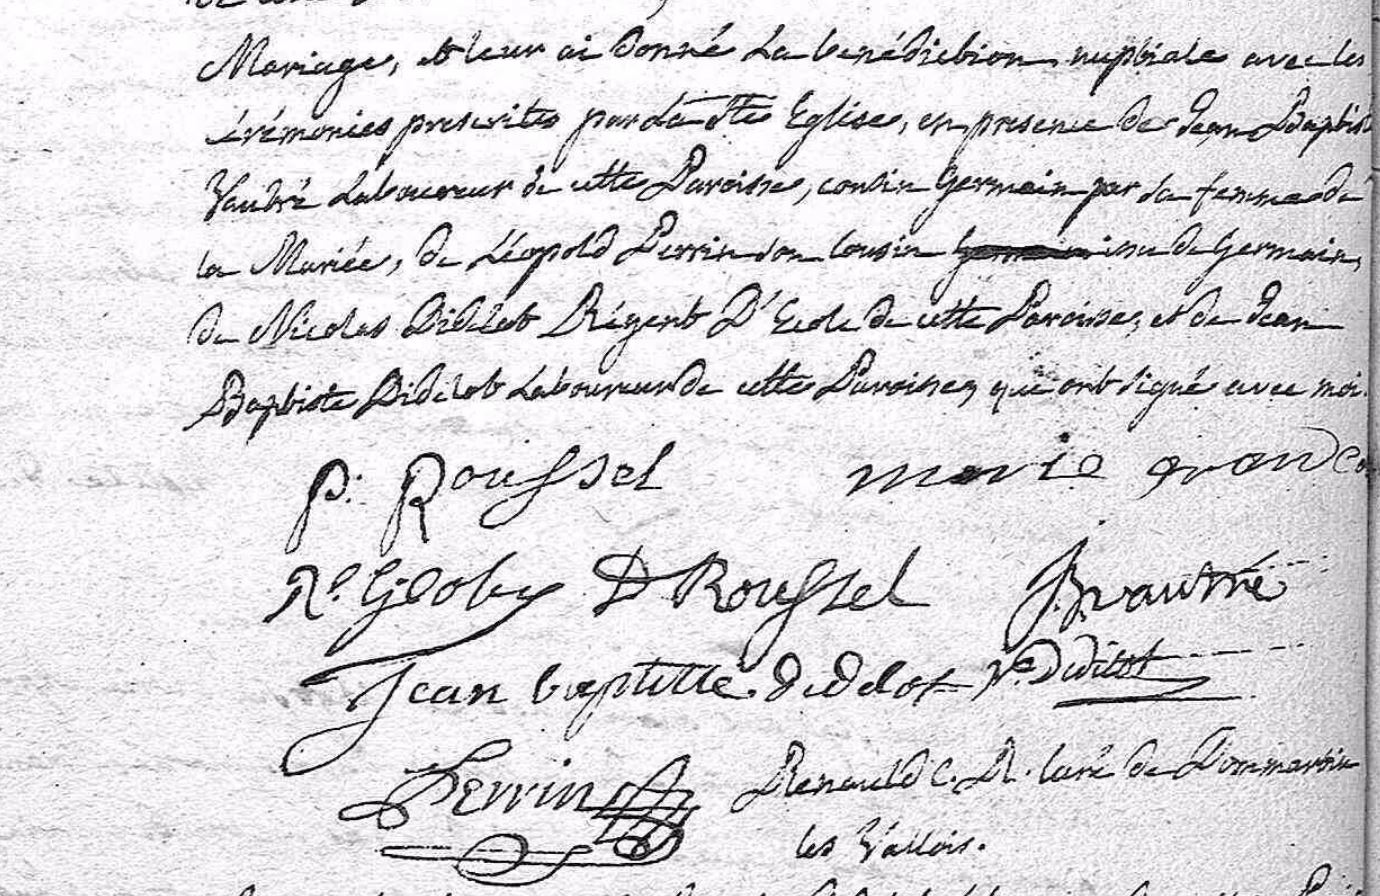 Mariage, et leur ai donné La benédiction nuptiale avec les
cérémonies prescrites par La Ste Eglise, en presence de Jean Baptiste
Vautré Laboureur de cette Paroisse, cousin Germain par sa femme de
la Mariée, de Léopold Perrin son Cousin issu de Germain,
de Nicolas Didelot Régent D'Ecole de cette Paroisse, et de Jean
Baptiste Didelot Laboureur de cette Paroisse, qui ont signé avec moi.
P. Roussel marie
D Roussel JB vautré
Jean baptitte didelot N. Didelot
Perrin Renauld C. R. Curé de Dommartin
les Vallois.